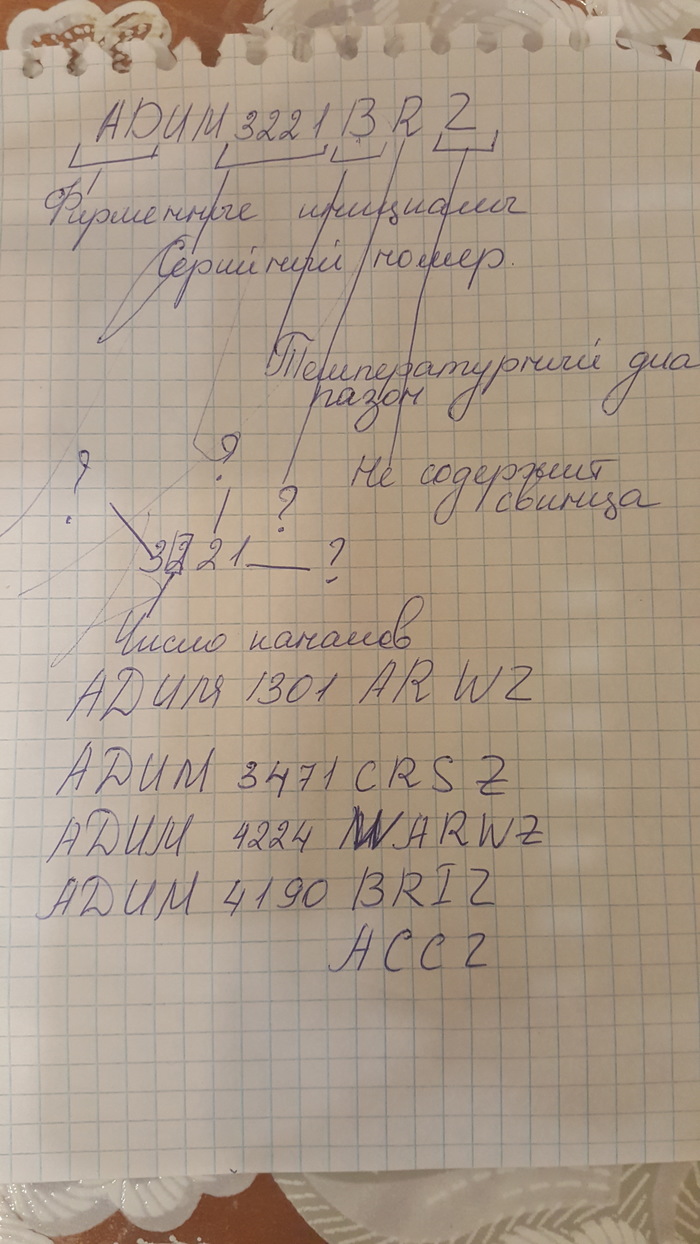 ADUM 3221 B R Z
Фирменные инициалы
Серийный номер.
Температурный диа
пазон
? ?
Не содержит
свинца
?
3221 — ?
Число каналов
ADUM 1301 ARWZ
ADUM 3471 CRSZ
ADUM 4224 WARWZ
ADUM 4190 BRIZ
ACCZ